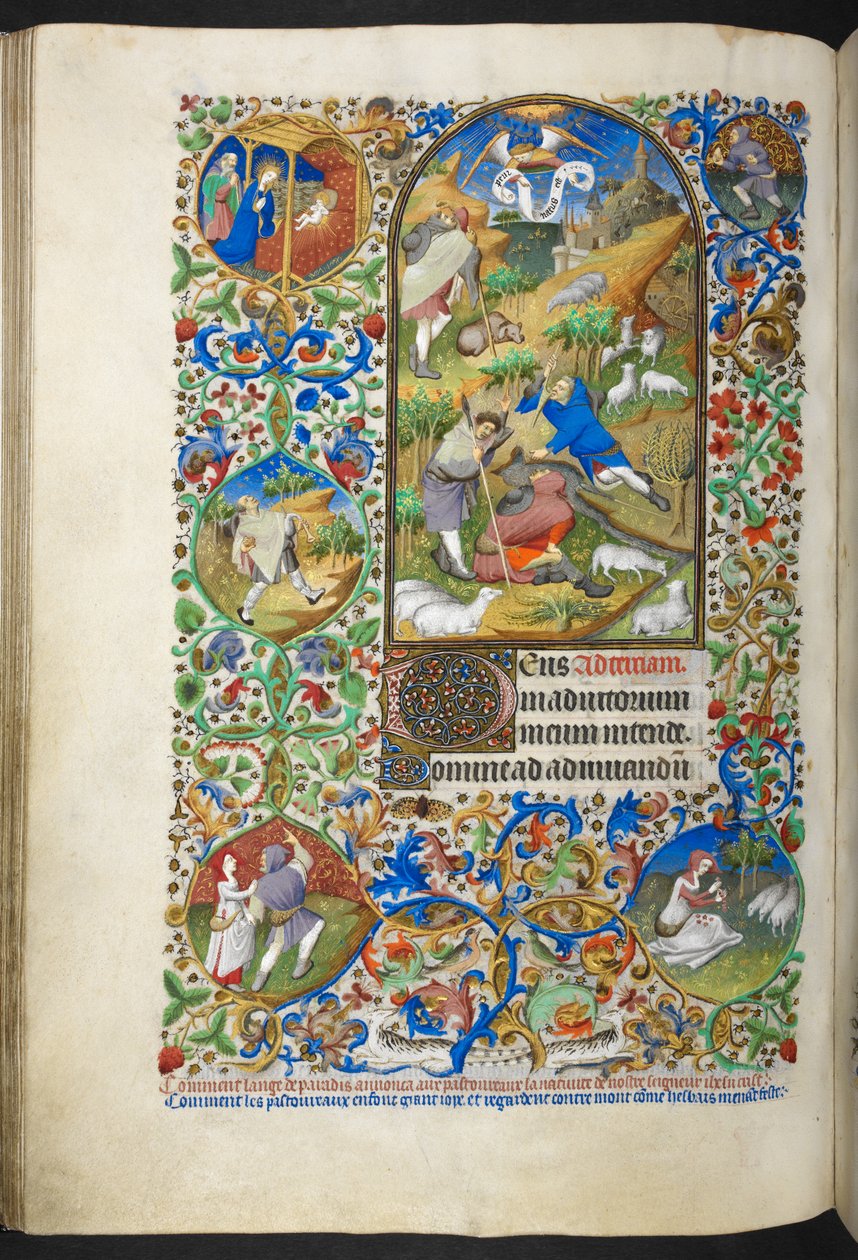 puer
natus est
Eus Ad terciam.
in adiutorium
meum intende.
Domine ad adiuuandū
Comment lange de paradis annonca aux pastoureaux la natiuite de nostre seigneur ihesu crist.
Comment les pastoureaux en font grant ioye. et regardent contre mont cōme